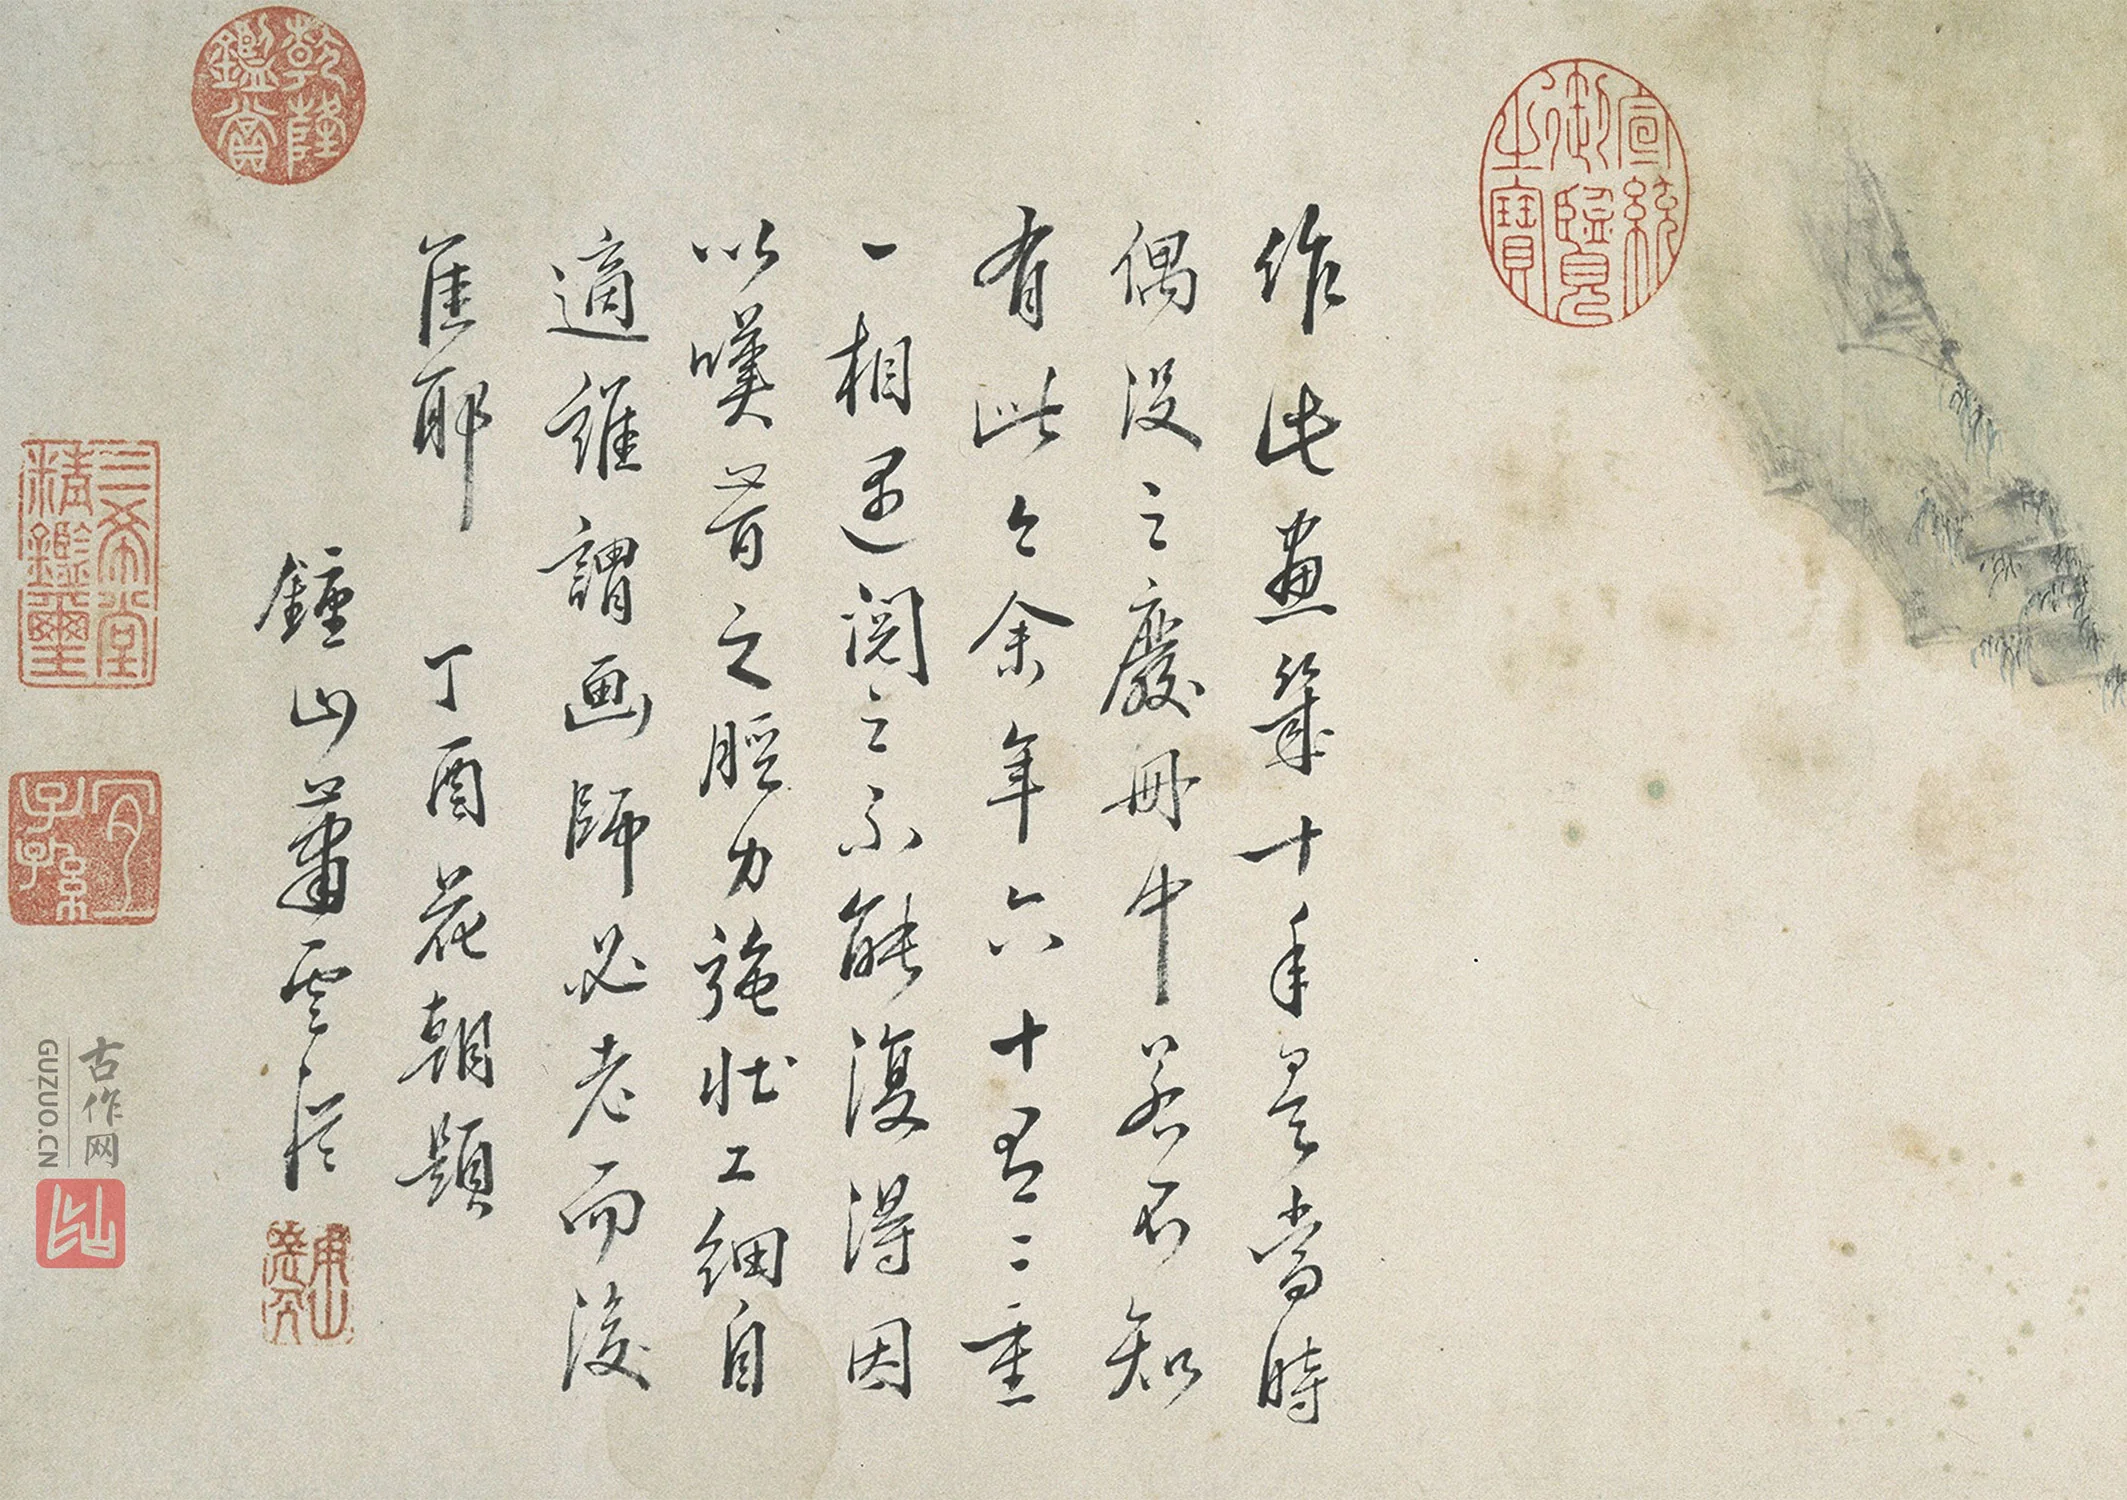 作此畫幾十年矣當時
偶沒之廢冊中若不知
有此今余年六十有二重
一相遇閱之不能復得因
以嘆昔之腕力強壯工細自
適誰謂画師必老而後
佳耶 丁酉花朝題
鍾山蕭雲從
宣統御覽之寶
乾隆鑑賞
三希堂精鑑璽
宜子孫
古作网
GUZUO.CN